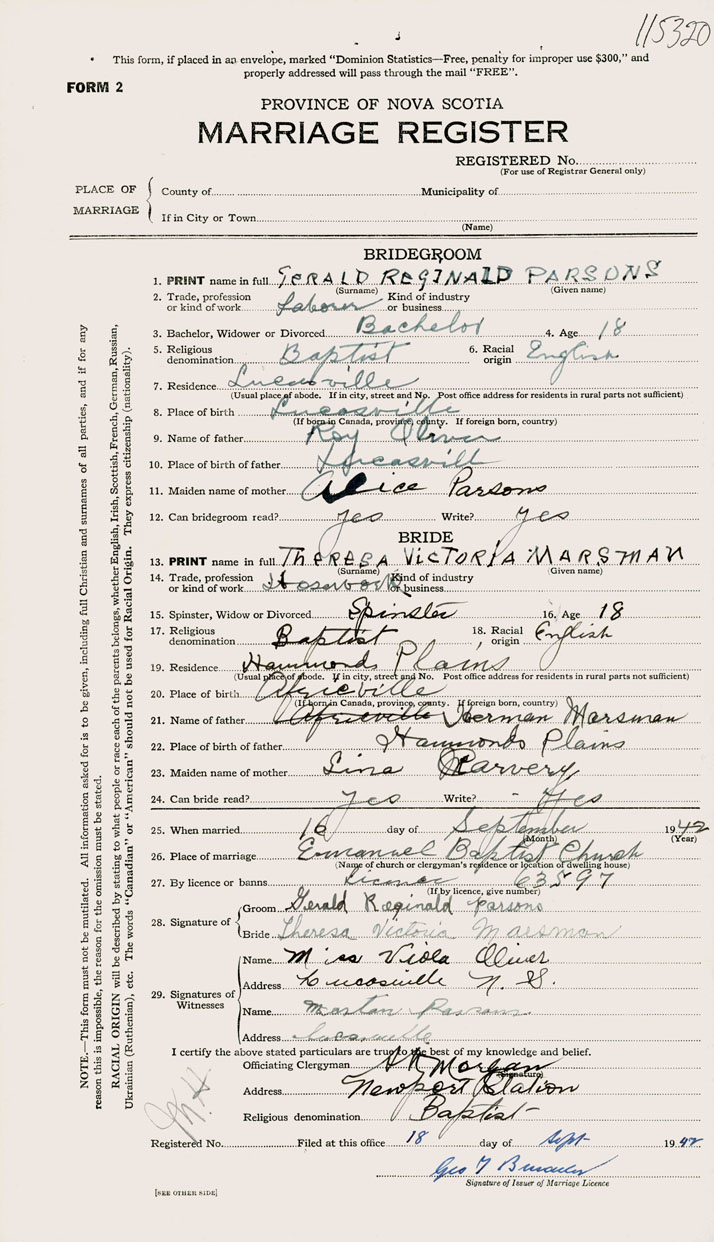 115320
This form, if placed in an envelope, marked "Dominion Statistics—Free, penalty for improper use $300," and
properly addressed will pass through the mail "FREE".
FORM 2
PROVINCE OF NOVA SCOTIA
MARRIAGE REGISTER
REGISTERED No.
(For use of Registrar General only)
PLACE OF MARRIAGE
County of Municipality of
If in City or Town
(Name)
BRIDEGROOM
1. PRINT name in full GERALD REGINALD PARSONS
(Surname) (Given name)
2. Trade, profession or kind of work Laborer Kind of industry or business
3. Bachelor, Widower or Divorced Bachelor 4. Age 18
5. Religious denomination Baptist 6. Racial origin English
7. Residence Lucasville
(Usual place of abode. If in city, street and No. Post office address for residents in rural parts not sufficient)
8. Place of birth Lucasville
(If born in Canada, province, county. If foreign born, country)
9. Name of father Roy Oliver
10. Place of birth of father Lucasvill
11. Maiden name of mother Alice Parsons
12. Can bridegroom read? yes Write? yes
BRIDE
13. PRINT name in full THERESA VICTORIA MARSMAN
(Surname) (Given name)
14. Trade, profession or kind of work Kind of industry or business
15. Spinster, Widow or Divorced Spinster 16. Age 18
17. Religious denomination Baptist 18. Racial origin English
19. Residence Hammonds Plains
(Usual place of abode. If in city, street and No. Post office address for residents in rural parts not sufficient)
20. Place of birth Africville
(If born in Canada, province, county. If foreign born, country)
21. Name of father Africville Herman Marsman
22. Place of birth of father Hammonds Plains
23. Maiden name of mother Lina Carvery
24. Can bride read? yes Write? Yes
25. When married 16 day of September 1942
(Month) (Year)
26. Place of marriage Emmanuel Baptist Church
(Name of church or clergyman's residence or location of dwelling house)
27. By licence or banns License 63597
(If by licence, give number)
28. Signature of
Groom Gerald Reginald Parsons
Bride Theresa Victoria Marsman
29. Signatures of Witnesses
Name Miss Viola Oliver
Address Lucasville N.S.
Name Parsons
Address Lucasville
I certify the above stated particulars are true to the best of my knowledge and belief.
Officiating Clergyman Morgan
(Signature)
Address Newport Station
Religious denomination Baptist
Registered No. Filed at this office 18 day of Sept 1942
Geo
Signature of Issuer of Marriage Licence
[SEE OTHER SIDE]
NOTE.—This form must not be mutilated. All information asked for is to be given, including full Christian and surnames of all parties, and if for any
reason this is impossible, the reason for the omission must be stated.
RACIAL ORIGIN will be described by stating to what people or race each of the parents belongs, whether English, Irish, Scottish, French, German, Russian,
Ukrainian (Ruthenian), etc. The words "Canadian" or "American" should not be used for Racial Origin. They express citizenship (nationality).